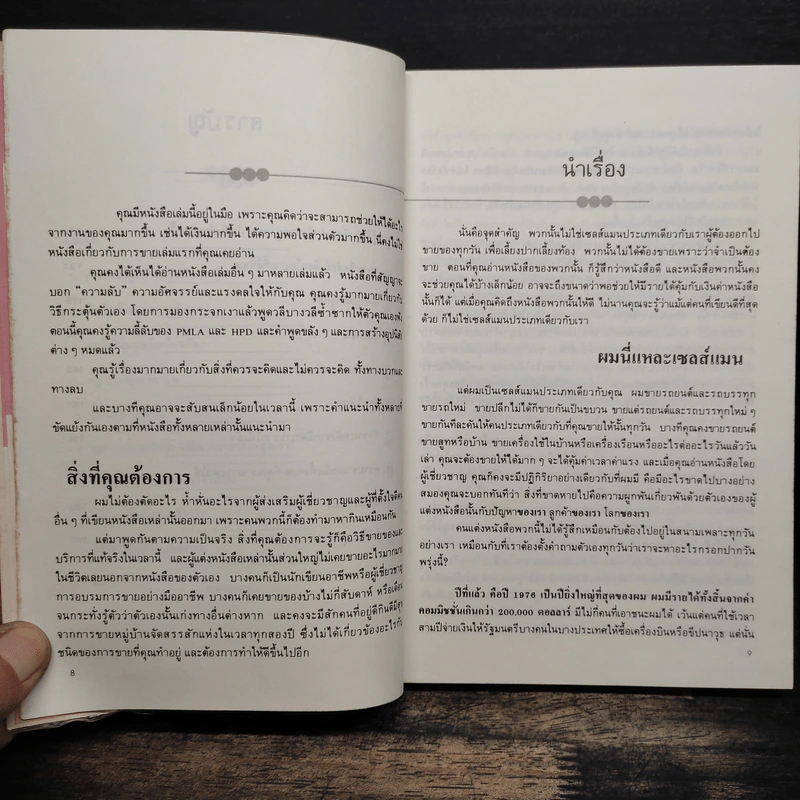 คุณมีหนังสือเล่มนี้อยู่ในมือ เพราะคุณคิดว่าจะสามารถช่วยให้ได้อะไร
จากงานของคุณมากขึ้น เช่นได้เงินมากขึ้น ได้ความพอใจส่วนตัวมากขึ้น นี่คงไม่ใช่
หนังสือเกี่ยวกับการขายเล่มแรกที่คุณเคยอ่าน
คุณคงได้เห็นได้อ่านหนังสือเล่มอื่น ๆ มาหลายเล่มแล้ว หนังสือที่สัญญาจะ
บอก "ความลับ" ความอัศจรรย์และแรงดลใจให้กับคุณ คุณคงรู้มากมายเกี่ยวกับ
วิธีกระตุ้นตัวเอง โดยการมองกระจกเงาแล้วพูดวลีบางวลีซ้ำซากให้ตัวคุณเองฟัง
ตอนนี้คุณคงรู้ความลี้ลับของ PMLA และ HPD และคำพูดขลัง ๆ และการสร้างอุปนิสัย
ต่าง ๆ หมดแล้ว
คุณรู้เรื่องมากมายเกี่ยวกับสิ่งที่ควรจะคิดและไม่ควรจะคิด ทั้งทางบวกและ
ทางลบ
และบางทีคุณอาจจะสับสนเล็กน้อยในเวลานี้ เพราะคำแนะนำทั้งหลายที่
ขัดแย้งกันเองตามที่หนังสือทั้งหลายเหล่านั้นแนะนำมา
สิ่งที่คุณต้องการ
ผมไม่ต้องตัดอะไร ห้ำหั่นอะไรจากผู้ส่งเสริมผู้เชี่ยวชาญและผู้ที่ตั้งใจดี
อื่น ๆ ที่เขียนหนังสือเหล่านั้นออกมา เพราะคนพวกนี้ก็ต้องทำมาหากินเหมือนกัน
แต่มาพูดกันตามความเป็นจริง สิ่งที่คุณต้องการจะรู้ก็คือวิธีขายของและ
บริการที่แท้จริงในเวลานี้ และผู้แต่งหนังสือเหล่านั้นส่วนใหญ่ไม่เคยขายอะไรมากมาย
ในชีวิตเลยนอกจากหนังสือของตัวเอง บางคนก็เป็นนักเขียนอาชีพหรือผู้เชี่ยวชาญ
การอบรมการขายอย่างมืออาชีพ บางคนก็เคยขายของบ้างไม่กี่สัปดาห์ หรือเดือน
จนกระทั่งรู้ตัวว่าตัวเองนั้นเก่งทางอื่นต่างหาก และคงจะมีสักคนที่อยู่ดีกินดีมีสุข
จากการขายหมู่บ้านจัดสรรสักแห่งในเวลาทุกสองปี ซึ่งไม่ได้เกี่ยวข้องอะไรกับ
ชนิดของการขายที่คุณทำอยู่ และต้องการทำให้ดีขึ้นไปอีก
8
นำเรื่อง
นั่นคือจุดสำคัญ พวกนั้นไม่ใช่เซลส์แมนประเภทเดียวกับเราผู้ต้องออกไป
ขายของทุกวัน เพื่อเลี้ยงปากเลี้ยงท้อง พวกนั้นไม่ได้ต้องขายเพราะว่าจำเป็นต้อง
ขาย ตอนที่คุณอ่านหนังสือของพวกนั้น ก็รู้สึกว่าหนังสือดี และหนังสือพวกนั้นคง
จะช่วยคุณได้บ้างเล็กน้อย อาจจะถึงขนาดว่าพอช่วยให้มีรายได้คุ้มกับเงินค่าหนังสือ
นั้นก็ได้ แต่เมื่อคุณคิดถึงหนังสือพวกนั้นให้ดี ไม่นานคุณจะรู้ว่าแม้แต่คนที่เขียนดีที่สุด
ด้วย ก็ไม่ใช่เซลส์แมนประเภทเดียวกับเรา
ผมนี่แหละเซลส์แมน
แต่ผมเป็นเซลส์แมนประเภทเดียวกับคุณ ผมขายรถยนต์และรถบรรทุก
ขายรถใหม่ ขายปลีกไม่ได้กี่ขายกันเป็นขบวน ขายแต่รถยนต์และรถบรรทุกใหม่ ๆ
ขายกันทีละคันให้คนประเภทเดียวกับที่คุณขายให้นั้นทุกวัน บางทีคุณคงขายรถยนต์
ขายสูทหรือบ้าน ขายเครื่องใช้ในบ้านหรือเครื่องเรือนหรืออะไรต่ออะไรวันแล้ววัน
เล่า คุณจะต้องขายให้ได้มาก ๆ จะได้คุ้มค่าเวลาค่าแรง และเมื่อคุณอ่านหนังสือโดย
ผู้เชี่ยวชาญ คุณก็คงจะมีปฏิกิริยาอย่างเดียวกับที่ผมมี คือมีอะไรขาดไปบางอย่าง
สมองคุณจะบอกทันทีว่า สิ่งที่ขาดหายไปคือความผูกพันเกี่ยวพันด้วยตัวเองของผู้
แต่งหนังสือนั้นกับปัญหาของเรา ลูกค้าของเรา โลกของเรา
คนแต่งหนังสือพวกนี้ไม่ได้รู้สึกเหมือนกับต้องไปอยู่ในสนามเพลาะทุกวัน
อย่างเรา เหมือนกับที่เราต้องตั้งคำถามตัวเองทุกวันว่าเราจะหาอะไรกรอกปากวัน
พรุ่งนี้?
ปีที่แล้ว คือปี 1976 เป็นปียิ่งใหญ่ที่สุดของผม ผมมีรายได้ทั้งสิ้นจากค่า
คอมมิชชั่นเกินกว่า 200,000 ดอลลาร์ มีไม่กี่คนที่เอาชนะผมได้ เว้นแต่คนที่ใช้เวลา
สามปีจ่ายเงินให้รัฐมนตรีบางคนในบางประเทศให้ซื้อเครื่องบินหรือขีปนาวุธ แต่นั่น
9